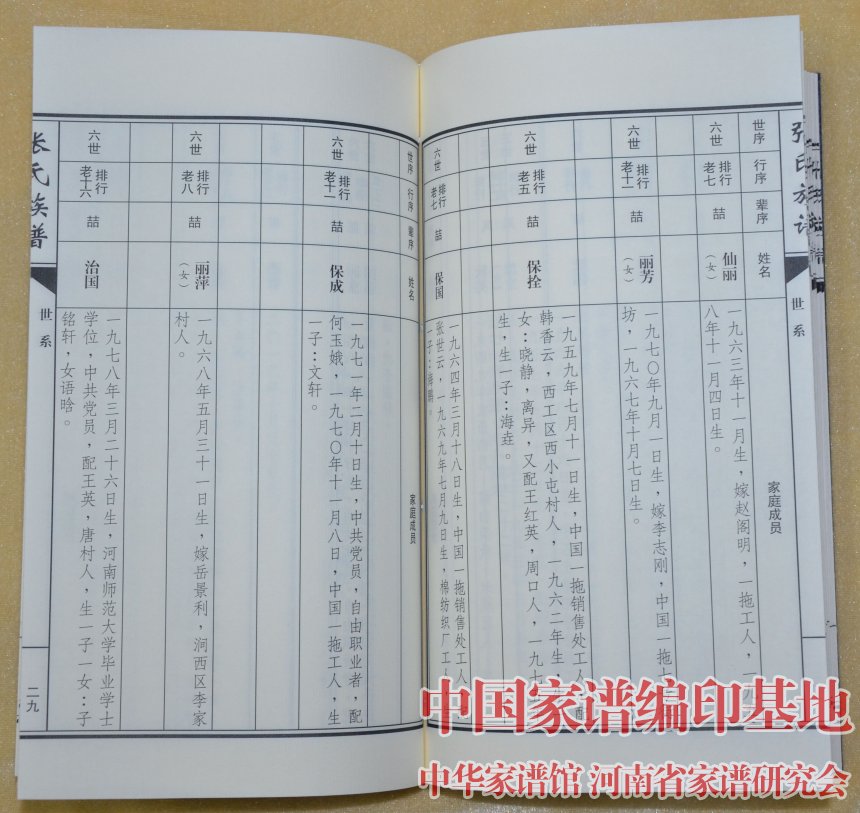 张氏族谱
世系
世序
行序
辈序
姓名
家庭成员
六世
排行
老七
喆
仙丽
（女）
一九六三年十一月生，嫁赵阁明，一拖工人，一九
八年十一月四日生。
六世
排行
老十二
喆
丽芳
（女）
一九七〇年九月一日生，嫁李志刚，中国一拖
坊，一九六七年十月七日生。
六世
排行
老五
喆
保拴
一九五九年七月十一日生，中国一拖销售处工人，配
韩香云，西工区西小屯村人，一九六二年生，
女：晓静，离异，又配王红英，周口人，一九七
生，生一子：海垚。
六世
排行
老七
喆
保国
一九六四年三月十八日生，中国一拖销售处工人，
张世云，一九六九年七月九日生，棉纺织厂工人，
一子：鹏。
世序
行序
辈序
姓名
家庭成员
六世
排行
老十一
喆
保成
一九七一年二月十日生，中共党员，自由职业者，配
何玉娥，一九七〇年十一月八日，中国一拖工人，生
一子：文轩。
六世
排行
老八
喆
丽萍
（女）
一九六八年五月三十一日生，嫁岳景利，涧西区李家
村人。
六世
排行
老十六
喆
治国
一九七八年三月二十六日生，河南师范大学毕业学士
学位，中共党员，配王英，唐村人，生一子一女：子
铭轩，女语晗。
张氏族谱
世系
二九
中国家谱编印基地
中华家谱馆 河南省家谱研究会